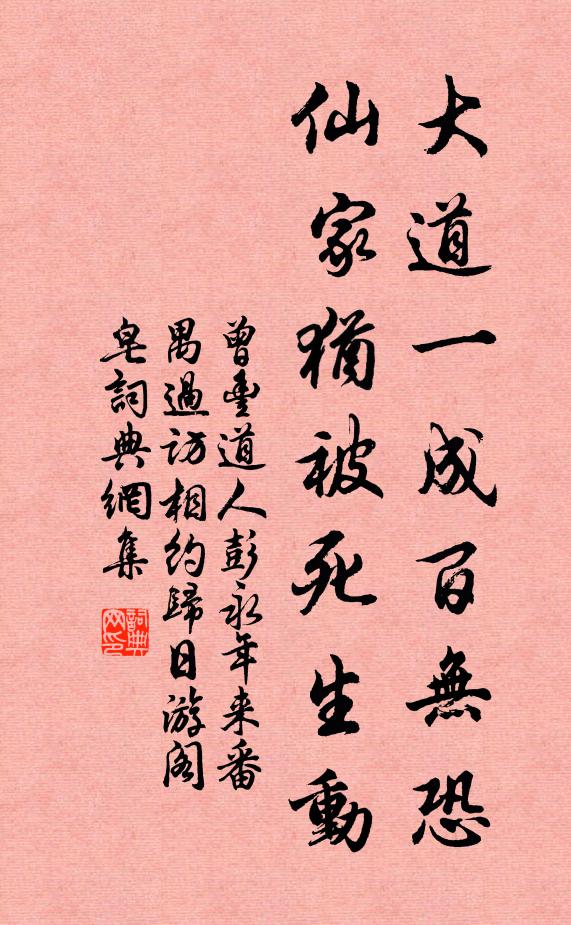 大道一成百無恐
仙家猶被死生動
曾豐道人彭永年来番
禺過访相約歸日游閣
皂詞典網集
詞典
网印